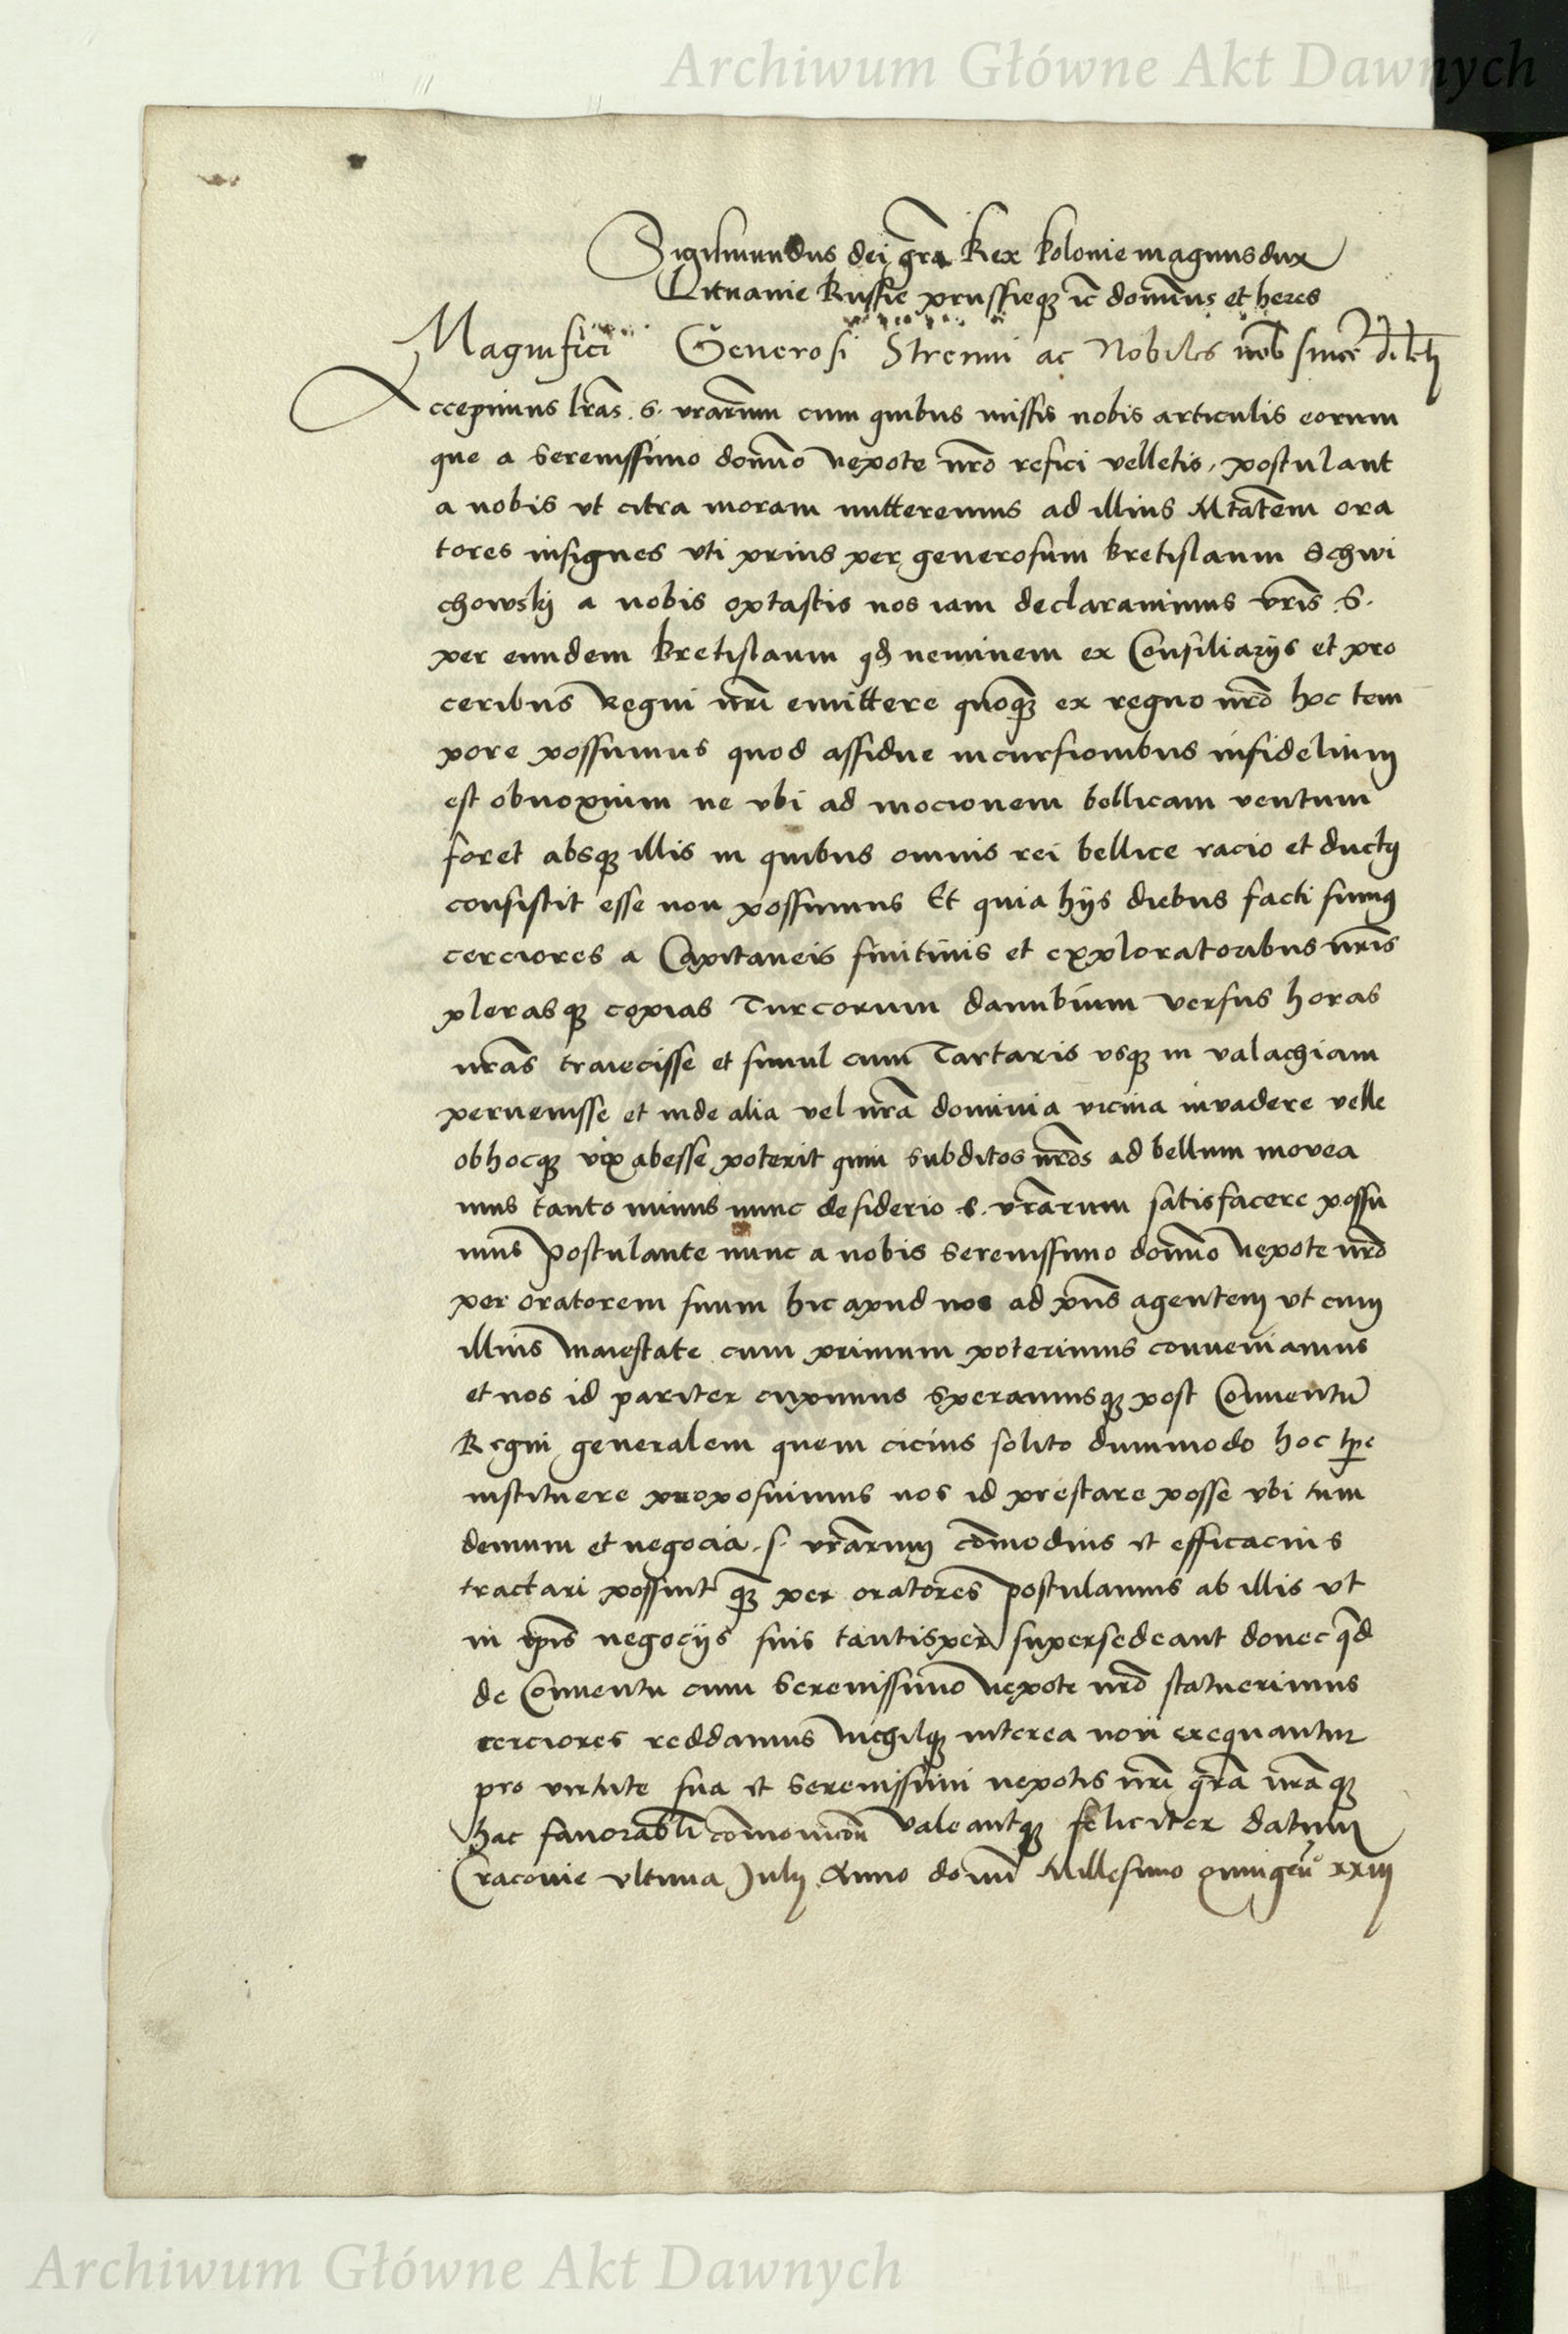 Archiwum Główne Akt Dawnych
Sigismundus dei gra Rex Polonie magnus dux
Lituanie Russie prussieqz ic dominus et heres
Magnifici Generosi Strenui ac Nobiles nob sincere dilecti
Accepimus lras s. vrarum cum quibus missis nobis articulis eorum
que a Serenissimo domino Nepote nro refici velletis, postulant
a nobis vt citra moram mitteremus ad illius Mtatem ora
tores insignes vti prius per generosum bretislaum Schwi
chowskij a nobis optastis nos iam declarauimus vris S.
per eundem bretislaum qd neminem ex Consiliarijs et pro
ceribus Regni nri emittere quoqz ex regno nro hoc tem
pore possumus quod assidue incursionibus infidelium
est obnoxium ne vbi ad mocionem bellicam ventum
foret absqz illis in quibus omnis rei bellice racio et ductus
consistit esse non possumus Et quia hijs diebus facti sumus
cerciores a Capitaneis finitimis et exploratoribus nris
plerasqz copias Turcorum danubium versus horas
nras traiecisse et simul cum Tartaris vsqz in valachiam
peruenisse et inde alia vel nra dominia vicina invadere velle
obhocqz vix abesse poterit quin subditos nros ad bellum movea
mus tanto minus nunc desiderio s. vrarum satisfacere possu
mus postulante nunc a nobis Serenissimo domino Nepote nro
per oratorem suum hic apud nos ad pns agentem vt cum
illius Maiestate cum primum poterimus conveniamus
et nos id pariter cupimus speramusqz post Conuentu
Regni generalem quem cicius solito dummodo hoc tpe
instituere proposuimus nos id prestare posse vbi tum
demum et negocia s. vrarum comodius et efficacius
tractari possint qz per oratores postulamus ab illis vt
in ipis negocijs suis tantisper supersedeant donec qd
de Conuentu cum Serenissimo Nepote nro statuerimus
cerciores reddamus Nichilqz interea non exequantur
pro virtute sua et Serenissimi nepotis nri gra nraqz
hac fauorabli Valeantqz feliciter datum
Cracouie vltima Julij Anno domi Millesimo quingenº xxiij
Archiwum Główne Akt Dawnych